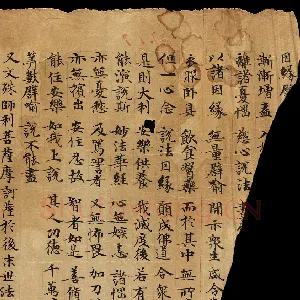 因緣
漸漸增益 入
離諸憂惱 慈心說法
以諸因緣 無量譬喻 開示眾生 咸令
衣服臥具 飲食醫藥 而於其中 無所
但一心念 說法因緣 願成佛道 令眾
是則大利 安樂供養 我滅度後 若有
能演說斯 妙法華經 心無嫉恚 諸惱
亦無憂愁 及罵詈者 又無怖畏 加刀
亦無擯出 安住忍故 智者如是 善修
能住安樂 如我上說 其人功德 千萬
筭數譬喻 說不能盡
又文殊師利菩薩摩訶薩於後末世法